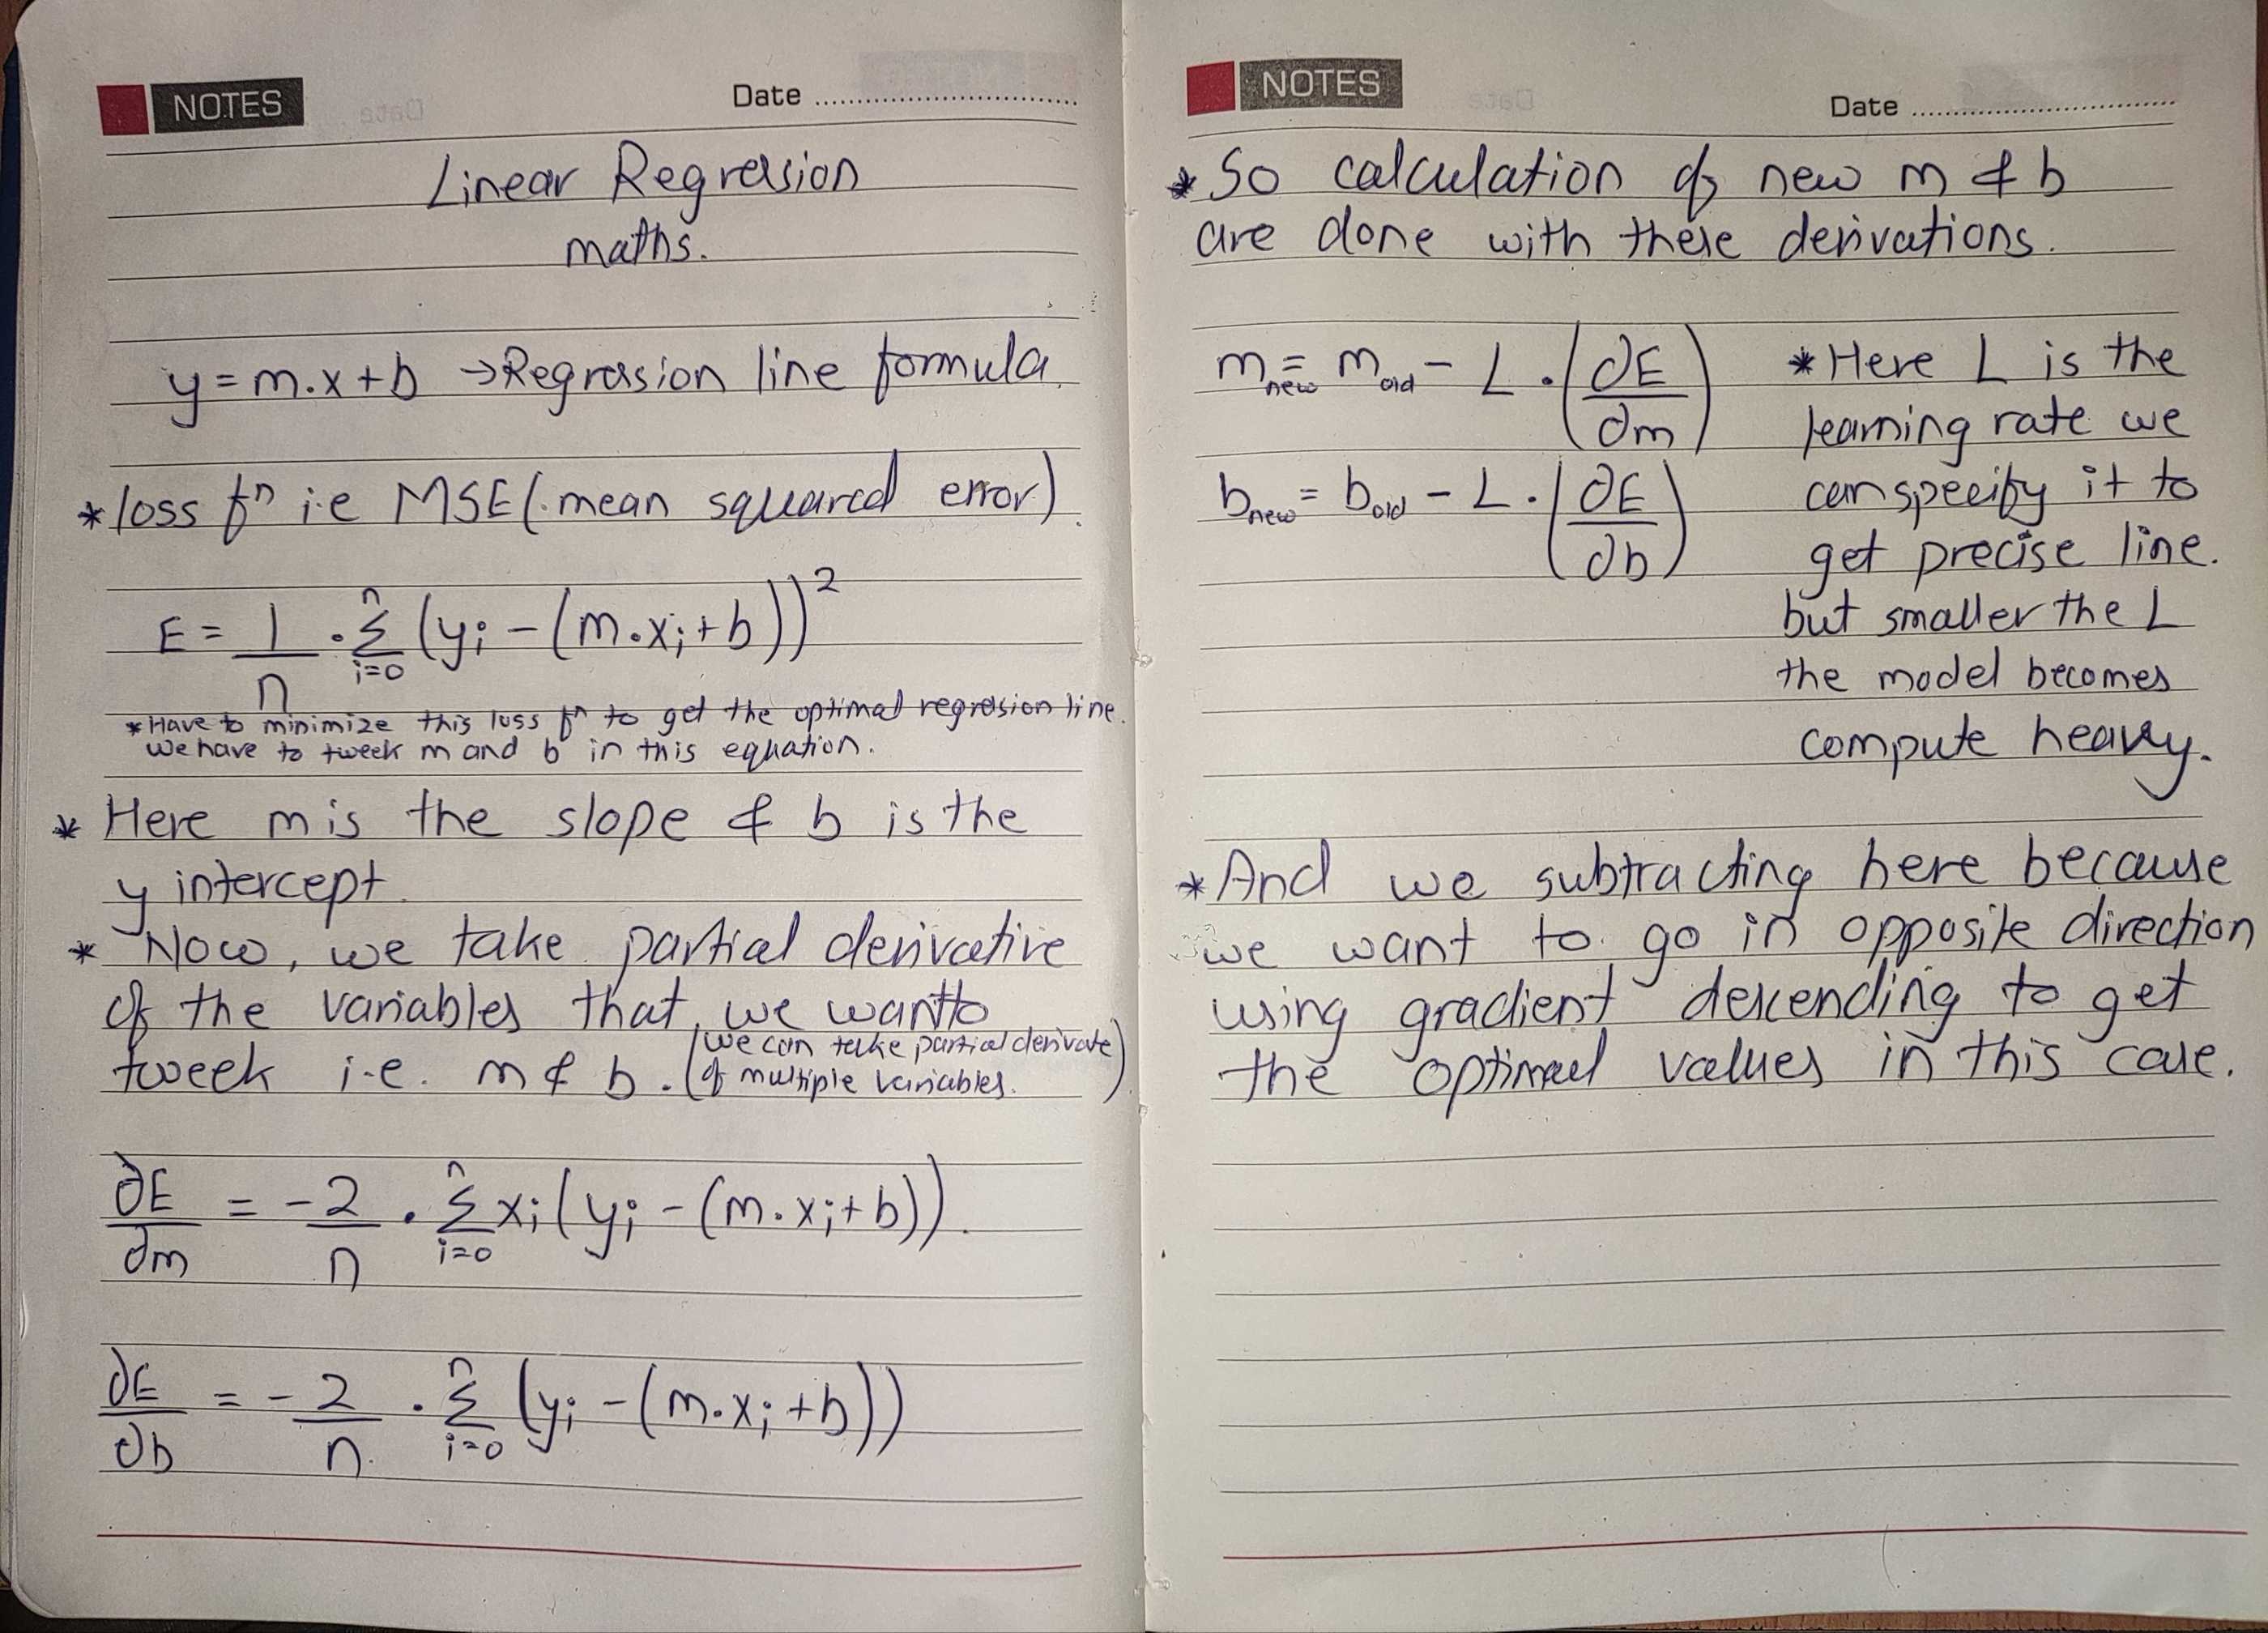 NOTES
Date
Linear Regression
maths.
y = m.x + b → Regression line formula.
* loss fⁿ i.e MSE (mean squared error).
E = 1/n . Σ_{i=0}^{n} (yᵢ - (m.xᵢ + b))²
* Have to minimize this loss fⁿ to get the optimal regression line.
We have to tweek m and b in this equation.
* Here m is the slope & b is the
y intercept.
* Now, we take partial derivative
of the variables that we want to
tweek i.e. m & b. (We can take partial derivate
of multiple variables.)
∂E/∂m = -2/n . Σ_{i=0}^{n} xᵢ (yᵢ - (m.xᵢ + b)).
∂E/∂b = -2/n . Σ_{i=0}^{n} (yᵢ - (m.xᵢ + b))
NOTES
Date
* So calculation of new m & b
are done with these derivations.
m_new = m_old - L . (∂E/∂m)
b_new = b_old - L . (∂E/∂b)
* Here L is the
learning rate we
can specify it to
get precise line.
but smaller the L
the model becomes
compute heavy.
* And we subtracting here because
we want to go in opposite direction
using gradient descending to get
the optimal values in this case.